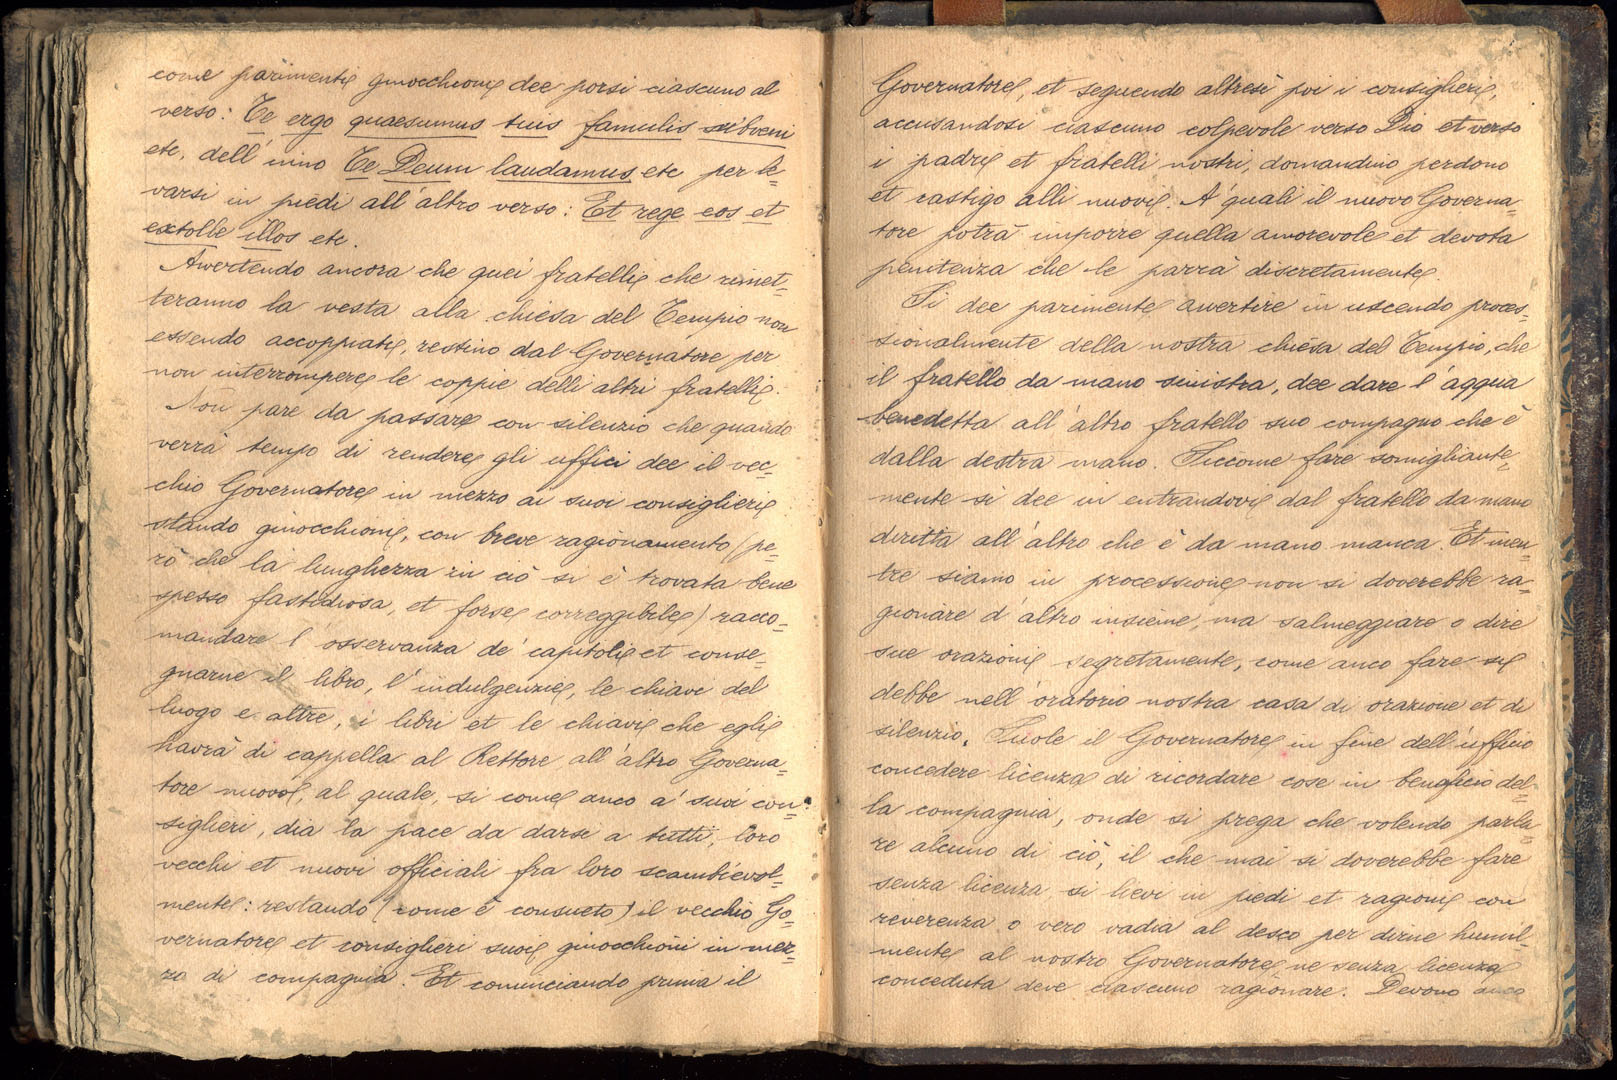 come parimente ginocchione dee porsi ciascuno al
verso: Te ergo quaesumus tuis famulis subveni
etc, dell'inno Te Deum laudamus etc per le-
varsi in piedi all'altro verso: Et rege eos et
extolle illos etc.
Avvertendo ancora che quei fratelli che rimet-
teranno la vesta alla chiesa del Tempio non
essendo accoppiati, restino dal Governatore per
non interrompere le coppie delli altri fratelli.
Non pare da passare con silenzio che quando
verrà tempo di rendere gli uffici dee il vec-
chio Governatore in mezzo ai suoi consiglieri
stando ginocchioni, con breve ragionamento (pe-
rò che la lunghezza in ciò si è trovata bene
spesso fastidiosa, et forse correggibile) racco-
mandare l'osservanza de' capitoli et conse-
gnarne il libro, l'indulgenzie, le chiavi del
luogo e altre, i libri et le chiavi che egli
havrà di cappella al Rettore all'altro Governa-
tore nuovo, al quale, si come anco a' suoi con-
siglieri, dia la pace da darsi a tutti, loro
vecchi et nuovi officiali fra loro scambievol-
mente: restando (come è consueto) il vecchio Go-
vernatore et consiglieri suoi ginocchioni in mez-
zo di compagnia. Et cominciando prima il
Governatore, et seguendo altresì poi i consiglieri,
accusandosi ciascuno colpevole verso Dio et verso
i padri et fratelli nostri, domandino perdono
et castigo alli nuovi. A' quali il nuovo Governa-
tore potrà imporre quella amorevole et devota
penitenza che le parrà discretamente.
Si dee parimente avvertire in uscendo proces-
sionalmente della nostra chiesa del Tempio, che
il fratello da mano sinistra, dee dare l'acqua
benedetta all'altro fratello suo compagno che è
dalla destra mano. Siccome fare somigliante-
mente si dee in entrandovi dal fratello da mano
diritta all'altro che è da mano manca. Et men-
tre siamo in processione non si doverebbe ra-
gionare d'altro insieme, ma salmeggiare o dire
sue orazioni segretamente, come anco fare si
debbe nell'oratorio nostra casa di orazione et di
silenzio. Suole il Governatore in fine dell'ufficio
concedere licenza di ricordare cose in beneficio del-
la compagnia, onde si prega che volendo parla-
re alcuno di ciò, il che mai si doverebbe fare
senza licenza si lievi in piedi et ragioni con
reverenza o vero vadia al desco per dirne humil-
mente al nostro Governatore, ne senza licenza
conceduta deve ciascuno ragionare. Devono anco